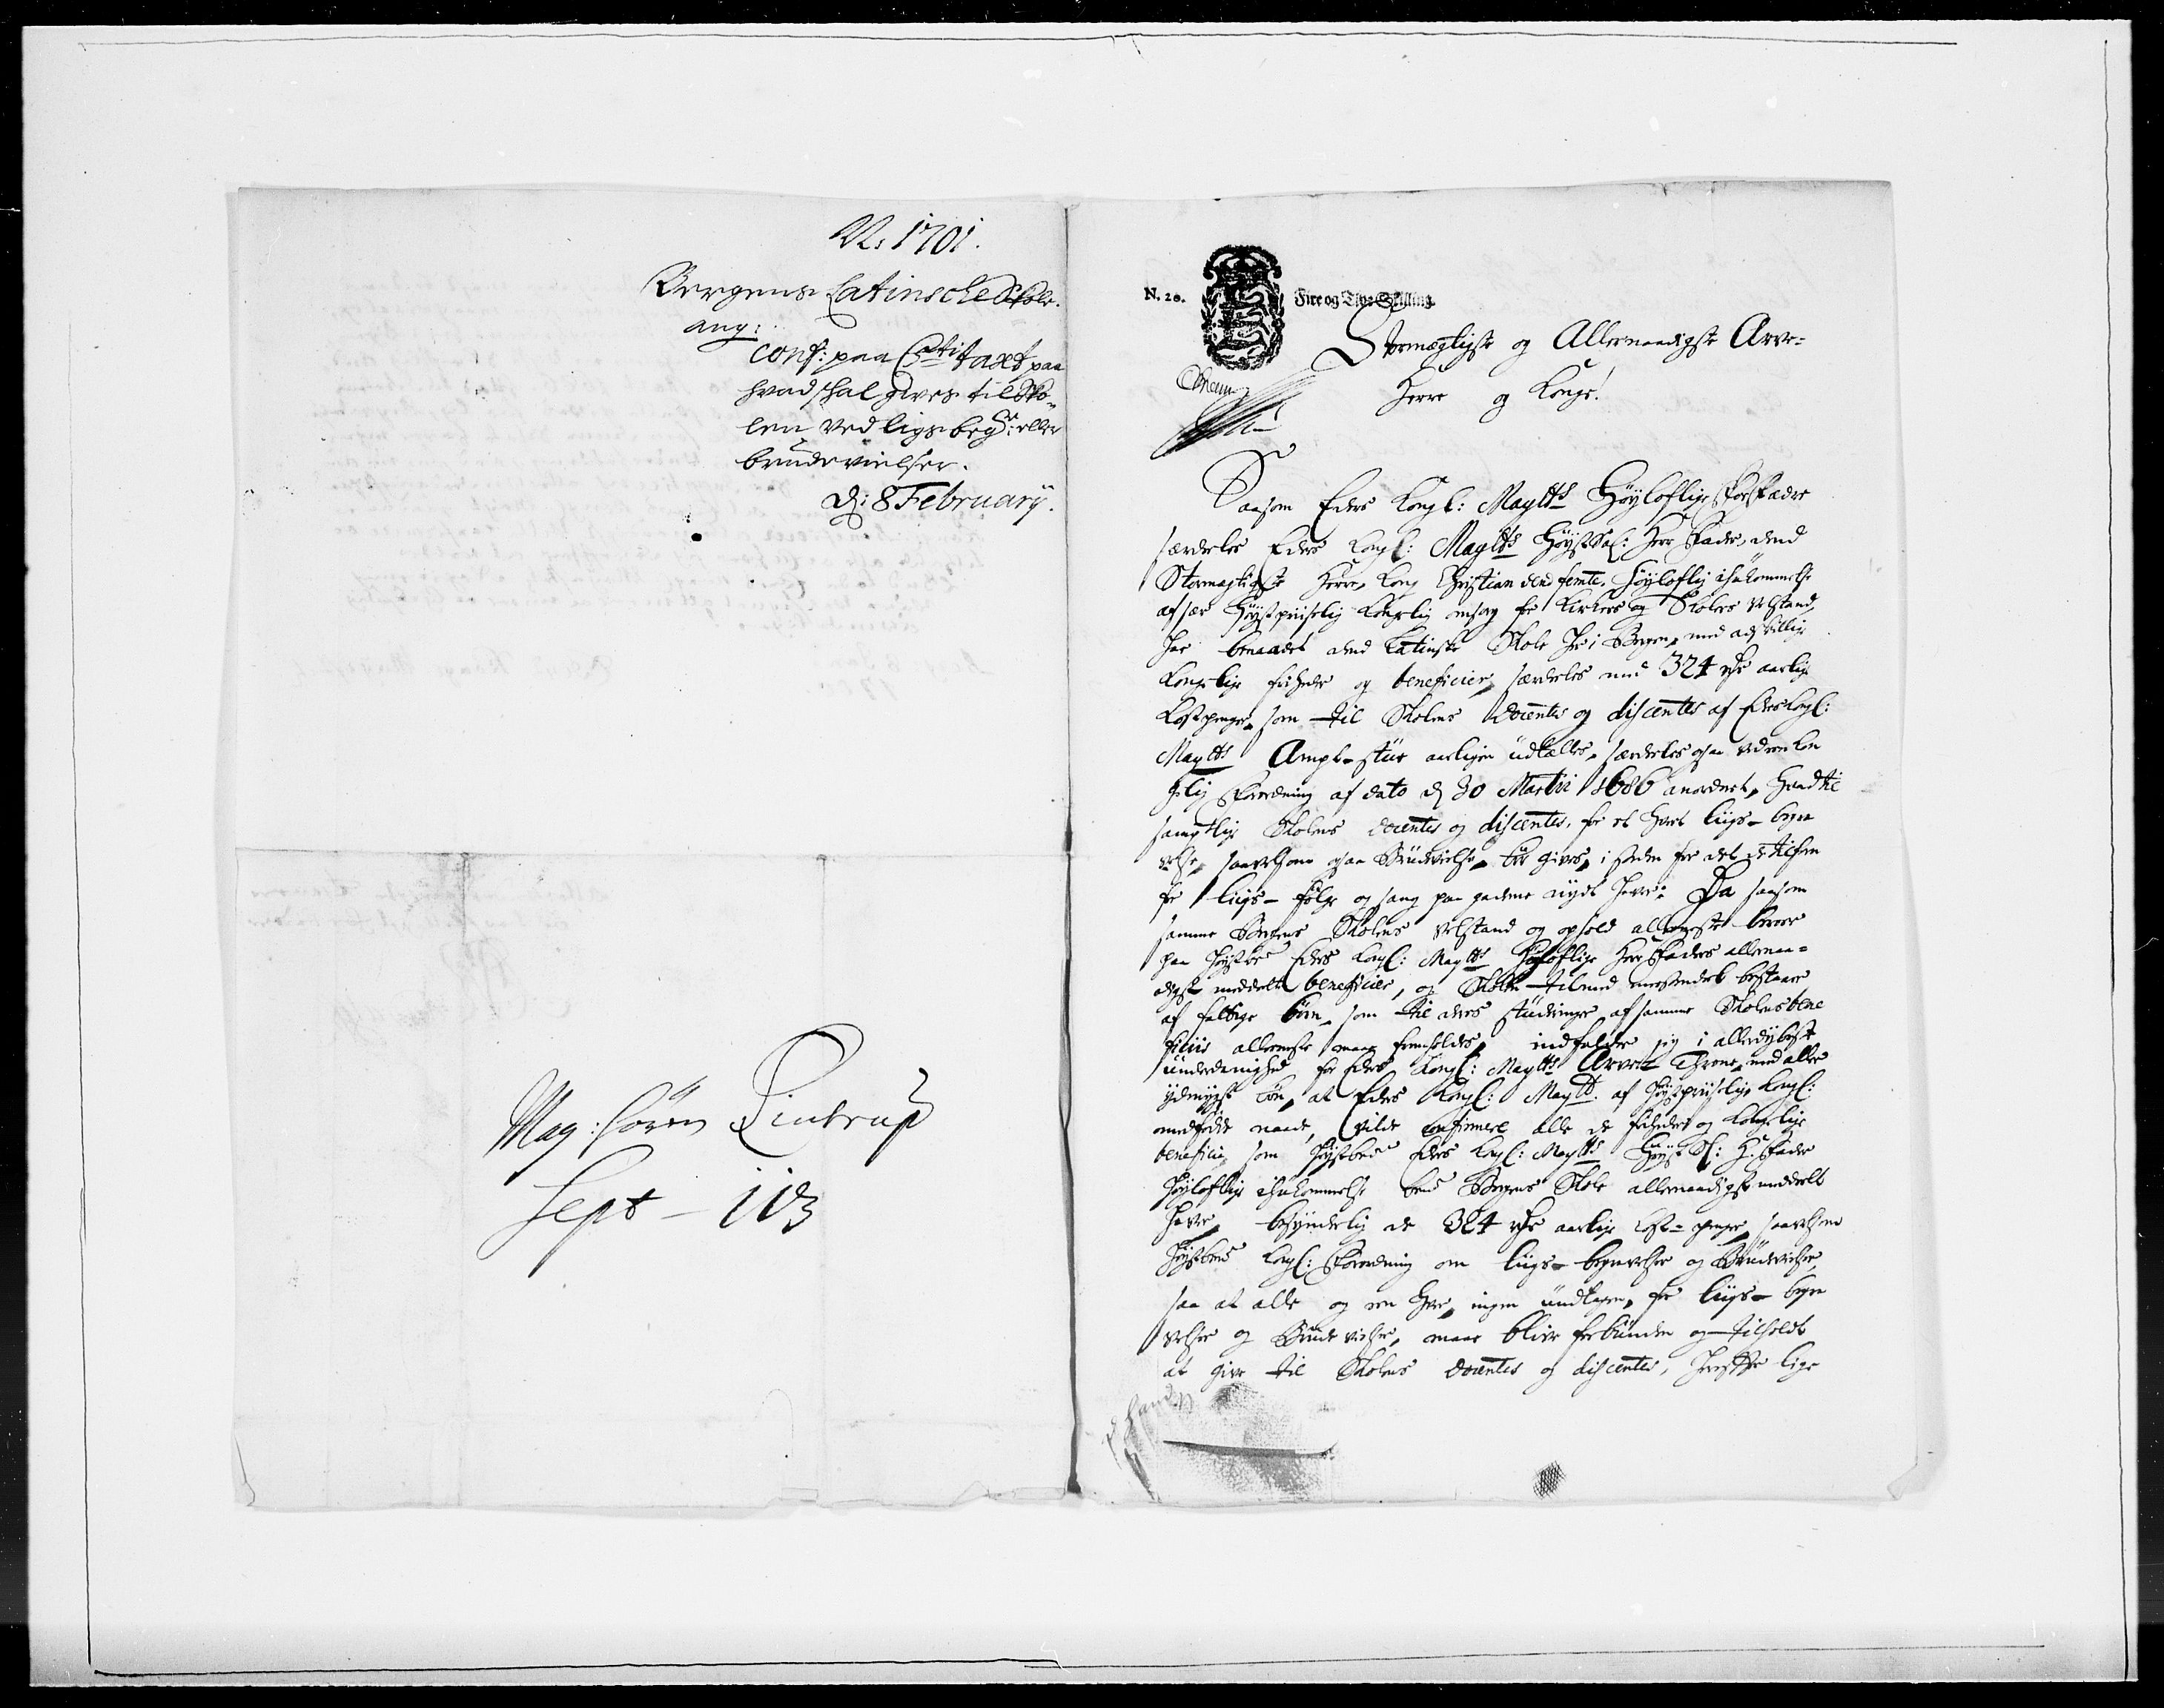 N. 1701.
Bergens Latinsche Skole.
ang:
Conf: paa C 5ti taxt paa
hvad skal gives til Sko-
len ved ligs beg: eller
brudevielser.
d: 8 February.
Mag: Sören Lintrup
Sept - 113
N. 20. Fire og Tive Skilling
Stormægtigste og Allernaadigste Arve-
Herre og Konge!
Saasom Eders Kongl: Maytts Høyloflige Forfædre
særdeles Eders Kongl: Maytts Høystsal: Herr Fader, dend
Stormægtigste Herre, Kong Christian dend femte, Høyloflig ihukommelse
af sær Høystpriiselig Kongelig omsorg for Kirkers og Skolers velstand,
har benaadet dend Latinske Skole her i Bergen, med adskillige
Kongelige friheder og beneficier, særdeles med 324 rdr aarlige
Kostpenge, som til Skolens docentes og discentes af Eders Kongl:
Maytts Ampt-stue aarligen udtælles, særdeles ogsaa ved een Kon
gelig Forordning af dato d 30 Martii 1686 anordnet, hvad til
samptlige Skolens docentes og discentes, for et hvert liigs-begra
velse, saavelsom ogsaa Brudevielse, bør gives, i steden for det de tilforn
for liigs-følge og sang paa gaderne nydt haver: Da saasom
samme Bergens Skoles velstand og ophold allermeste beroer
paa høystbem.te Eders Kongl: Maytts Høyloflige Herr Faders allernaa-
digst meddeelte beneficier, og Skolen tilmed meestendeel bestaaer
af fattige børn, som til deres studeringer af samme Skolens bene
ficiis allermeste maae fremholdes, indfalder jeg i allerdybeste
underdanighed for Eders Kongl: Maytts Arve Throne, med aller
ydmygst bøn, at Eders Kongl: Maytt. af Høystpriiselige Kongl:
medfødde naade, vilde confirmere alle de friheder og Kongelige
beneficier, som høystbem.te Eders Kongl: Maytts Høyst Sl: H. Fader
Høyloflige ihukommelse bem.te Bergens Skole allernaadigst meddeelt
haver, besynderlig de 324 rdr aarlige Kost-penge, saavelsom
høystbem.te Kongl: Forordning om liigs-begravelser og Brudevielser,
saa at alle og een hver, ingen undtagen, for liigs-begra
velser og Brude vielser, maae blive forbunden og tilholdt
at give til Skolens docentes og discentes, herefter lige